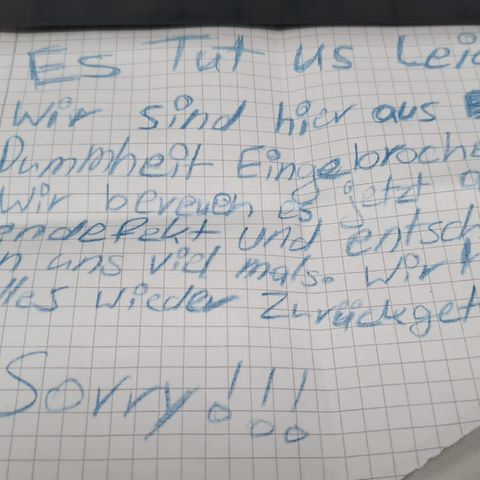 Es Tut us Leid
Wir sind hier aus
Dummheit Eingebroche
Wir bereuen es jetzt
endefekt und entsch
n uns viel mals. Wir h
lles wieder Zurückget
Sorry!!!